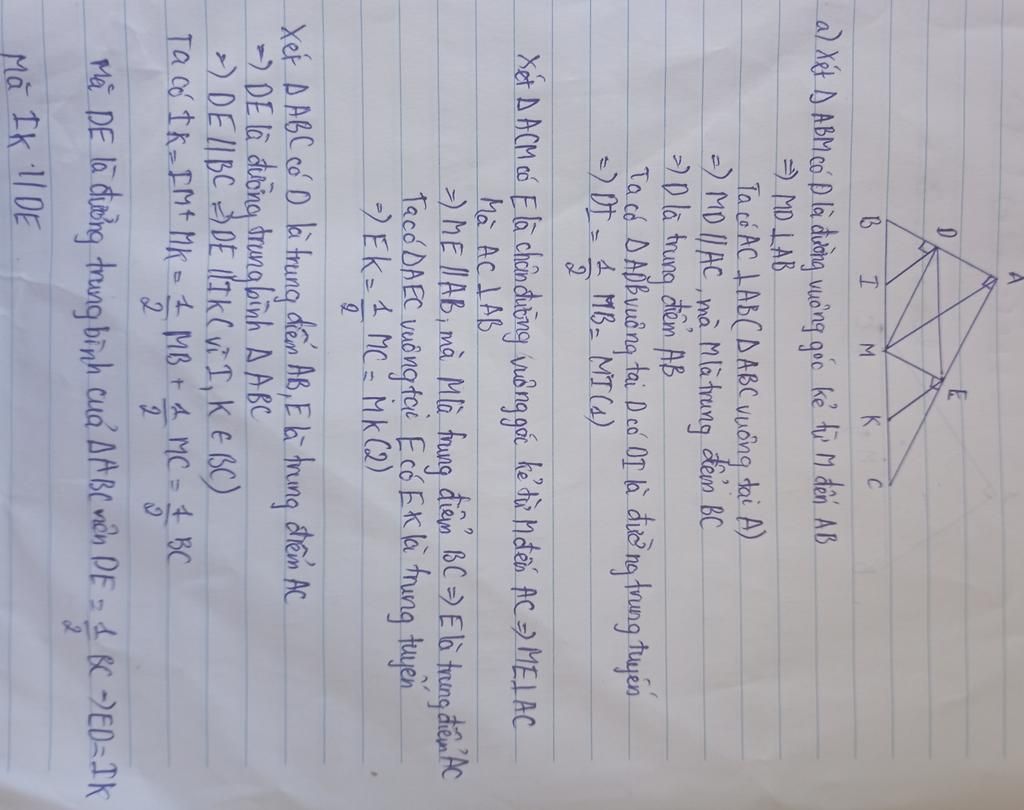 A
D
E
B
I
M
K
C
a) Xét Δ ABM có D là đường vuông góc kẻ từ M đến AB
=) MD ⊥ AB
Ta có AC ⊥ AB ( Δ ABC vuông tại A)
=) MD // AC, mà M là trung điểm BC
=) D là trung điểm AB
Ta có Δ ADB vuông tại D có DI là đường trung tuyến
=) DI = 1/2 MB = MI (1)
Xét Δ ACM có E là chân đường vuông góc kẻ từ M đến AC =) ME ⊥ AC
Mà AC ⊥ AB
=) ME // AB, mà M là trung điểm BC =) E là trung điểm AC
Ta có Δ AEC vuông tại E có EK là trung tuyến
=) EK = 1/2 MC = MK (2)
Xét Δ ABC có D là trung điểm AB, E là trung điểm AC
=) DE là đường trung bình Δ ABC
=) DE // BC =) DE // IK ( vì I, K ∈ BC)
Ta có IK = IM + MK = 1/2 MB + 1/2 MC = 1/2 BC
Mà DE là đường trung bình của Δ ABC nên DE = 1/2 BC =) ED = IK
Mà IK // DE